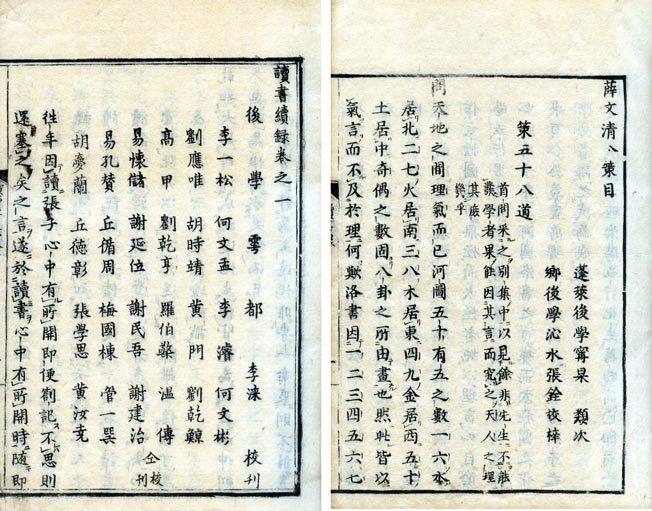 薛文清公策目
蓬萊後學甯杲 類次
鄉後學沁水張銓校梓
策五十八道
首問采之別集中以見餘非先生不能
讓學者果能因其言而究之天人之理
其庶
幾乎
問天地之間理氣而已河圖五十有五之數一六水
居北二七火居南三八木居東四九金居西五十
土居中奇偶之數固八卦之所由畫也然此皆以
氣言而不及於理何歟洛書因一二三四五六七
讀書續錄卷之一
後學 雩都 李淶 校刊
李一松 何文孟 李濬 何文彬
劉應唯 胡時靖 黃門 劉乾穎
高甲 劉乾亨 羅伯檠 溫傳
易懷儲 謝延位 謝民吾 謝建治 仝校刊
易孔贊 丘脩周 梅國棟 管一巽
胡夢蘭 丘德彰 張學思 黃汝克
徃年因讀張子心中有所開即便劄記不思則
還塞之矣之言遂於讀書心中有所開時隨即